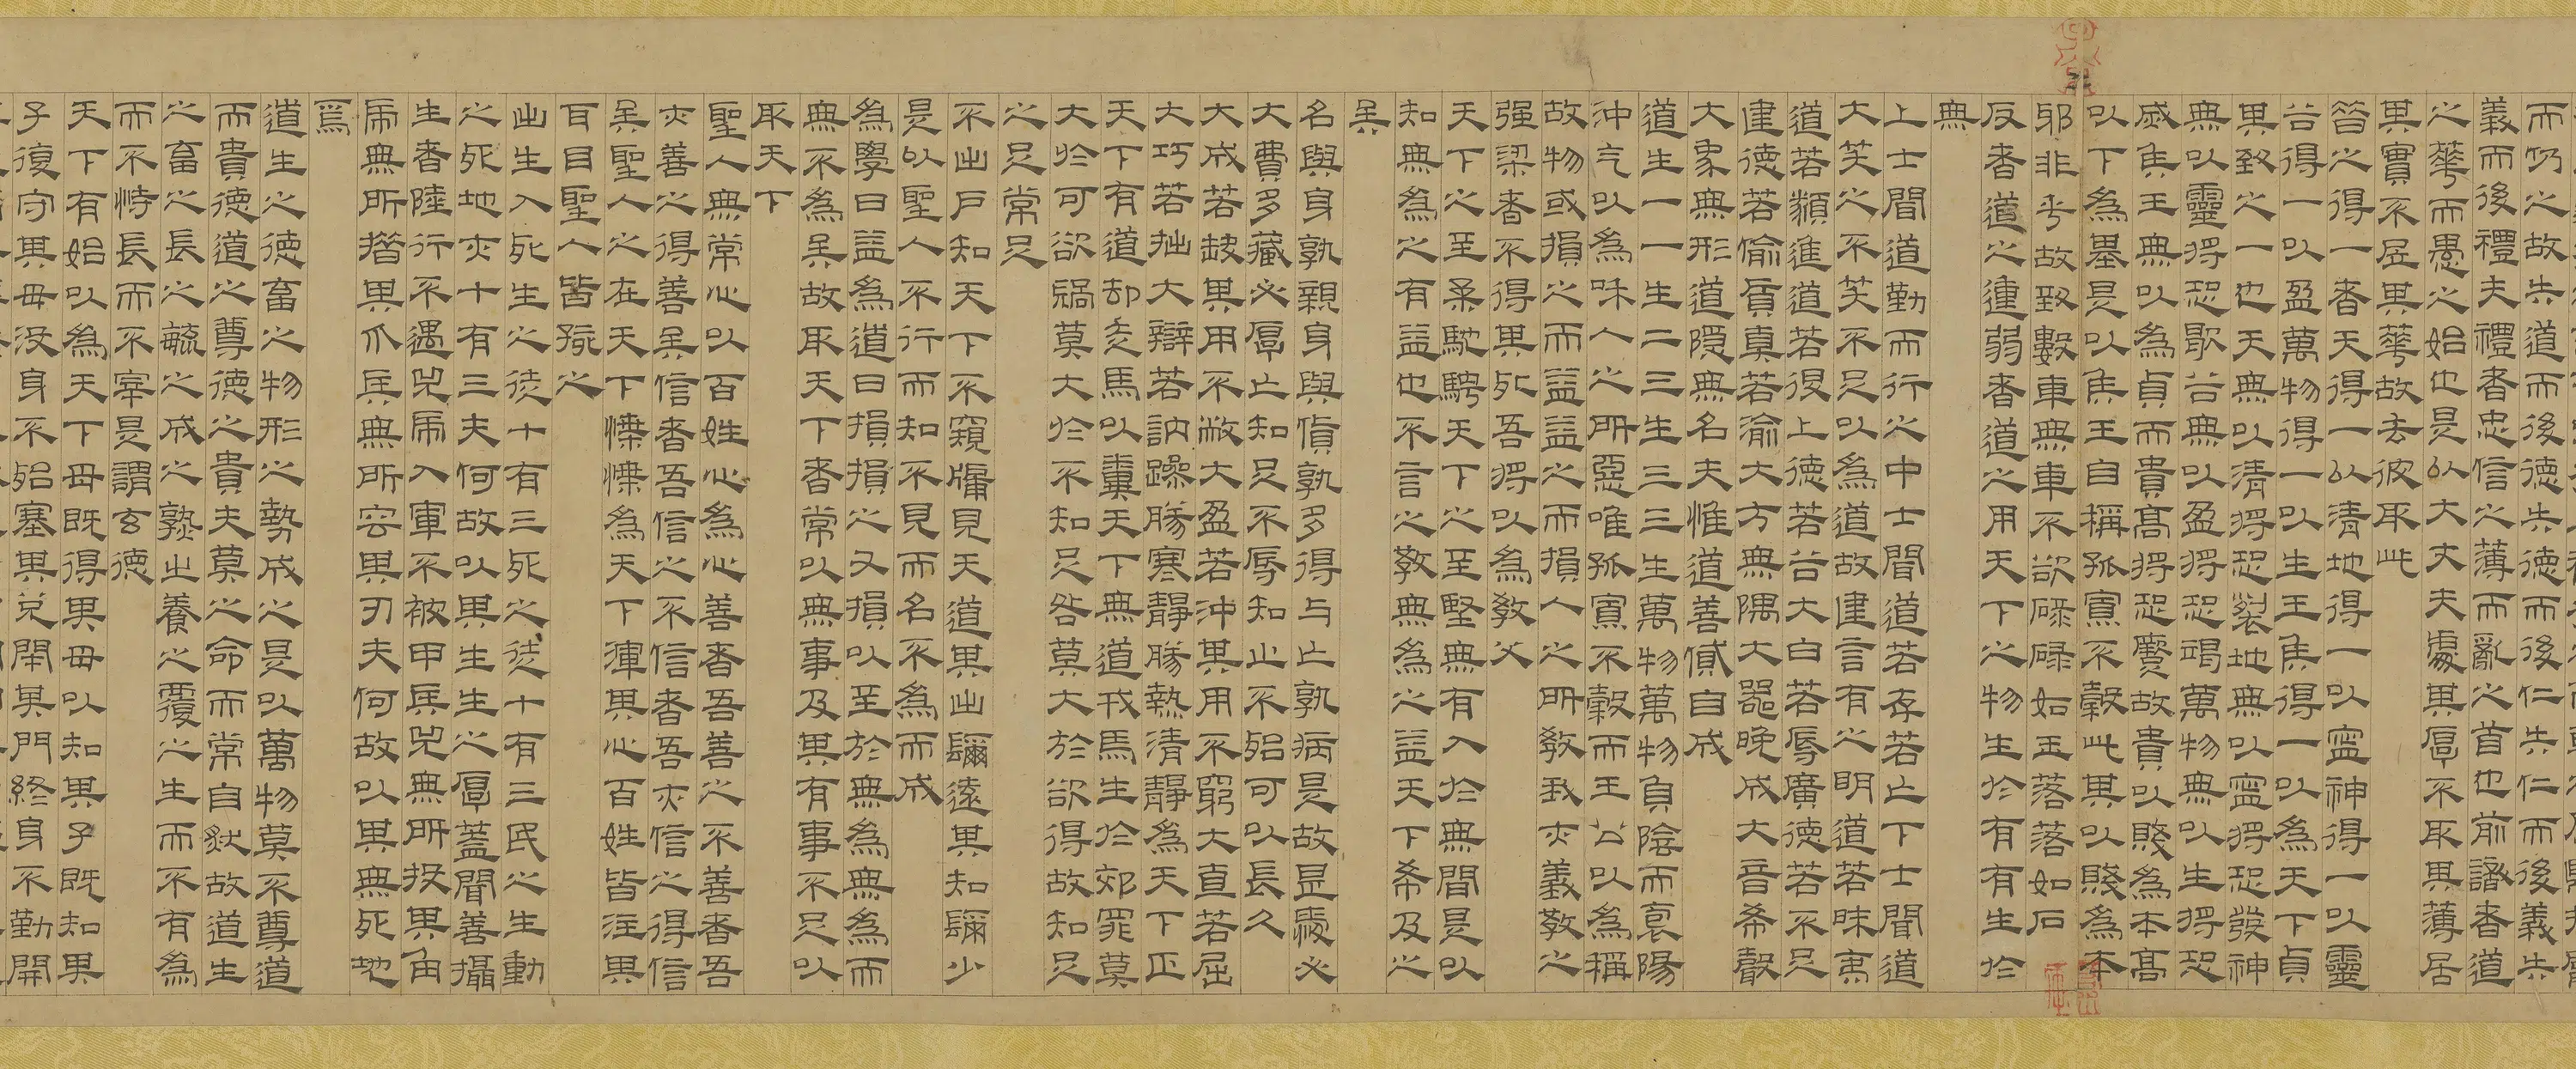 而仍之故失道而後德失德而後仁失仁而後義失
義而後禮夫禮者忠信之薄而亂之首也前識者道
之華而愚之始也是以大丈夫處其厚不取其薄居
其實不居其華故去彼取此
昔之得一者天得一以清地得一以寧神得一以靈
谷得一以盈萬物得一以生王侯得一以為天下貞
其致之一也天無以清將恐裂地無以寧將恐發神
無以靈將恐歇谷無以盈將恐竭萬物無以生將恐
滅侯王無以為貞而貴高將恐蹷故貴以賤為本高
以下為基是以侯王自稱孤寡不穀此其以賤為本
邪非乎故致數車無車不欲碌碌如玉落落如石
反者道之動弱者道之用天下之物生於有有生於
無
上士聞道勤而行之中士聞道若存若亡下士聞道
大笑之不笑不足以為道故建言有之明道若昧夷
道若纇進道若退上德若谷大白若辱廣德若不足
建德若偷質真若渝大方無隅大器晚成大音希聲
大象無形道隱無名夫惟道善貸自成
道生一一生二二生三三生萬物萬物負陰而裒陽
沖气以為和人之所惡唯孤寡不穀而王公以為稱
故物或損之而益益之而損人之所教我亦義教之
强梁者不得其死吾將以為教父
天下之至柔馳騁天下之至堅無有入於無間是以
知無為之有益也不言之教無為之益天下希及之
矣
名與身孰親身與貨孰多得与亡孰病是故甚愛必
大費多藏必厚亡知足不辱知止不殆可以長久
大成若缺其用不敝大盈若沖其用不窮大直若屈
大巧若拙大辯若訥躁勝寒靜勝熱清靜為天下正
天下有道却走馬以糞天下無道戎馬生於郊罪莫
大於可欲禍莫大於不知足咎莫大於欲得故知足
之足常足
不出戶知天下不窺牖見天道其出彌遠其知彌少
是以聖人不行而知不見而名不為而成
為學日益為道日損損之又損以至於無為無為而
無不為矣故取天下者常以無事及其有事不足以
取天下
聖人無常心以百姓心為心善者吾善之不善者吾
亦善之得善矣信者吾信之不信者吾亦信之得信
矣聖人之在天下慄慄為天下渾其心百姓皆注其
耳目聖人皆孩之
出生入死生之徒十有三死之徒十有三民之生動
之死地亦十有三夫何故以其生生之厚蓋聞善攝
生者陸行不遇兕虎入軍不被甲兵兕無所投其角
虎無所措其爪兵無所容其刃夫何故以其無死地
焉
道生之德畜之物形之勢成之是以萬物莫不尊道
而貴德道之尊德之貴夫莫之命而常自然故道生
之畜之長之毓之成之孰之養之覆之生而不有為
而不恃長而不宰是謂玄德
天下有始以為天下母既得其母以知其子既知其
子復守其母沒身不殆塞其兌閉其門終身不勤開